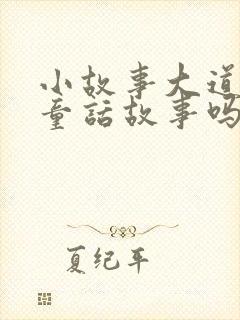 小故事大道
童話故事吗
夏纪年